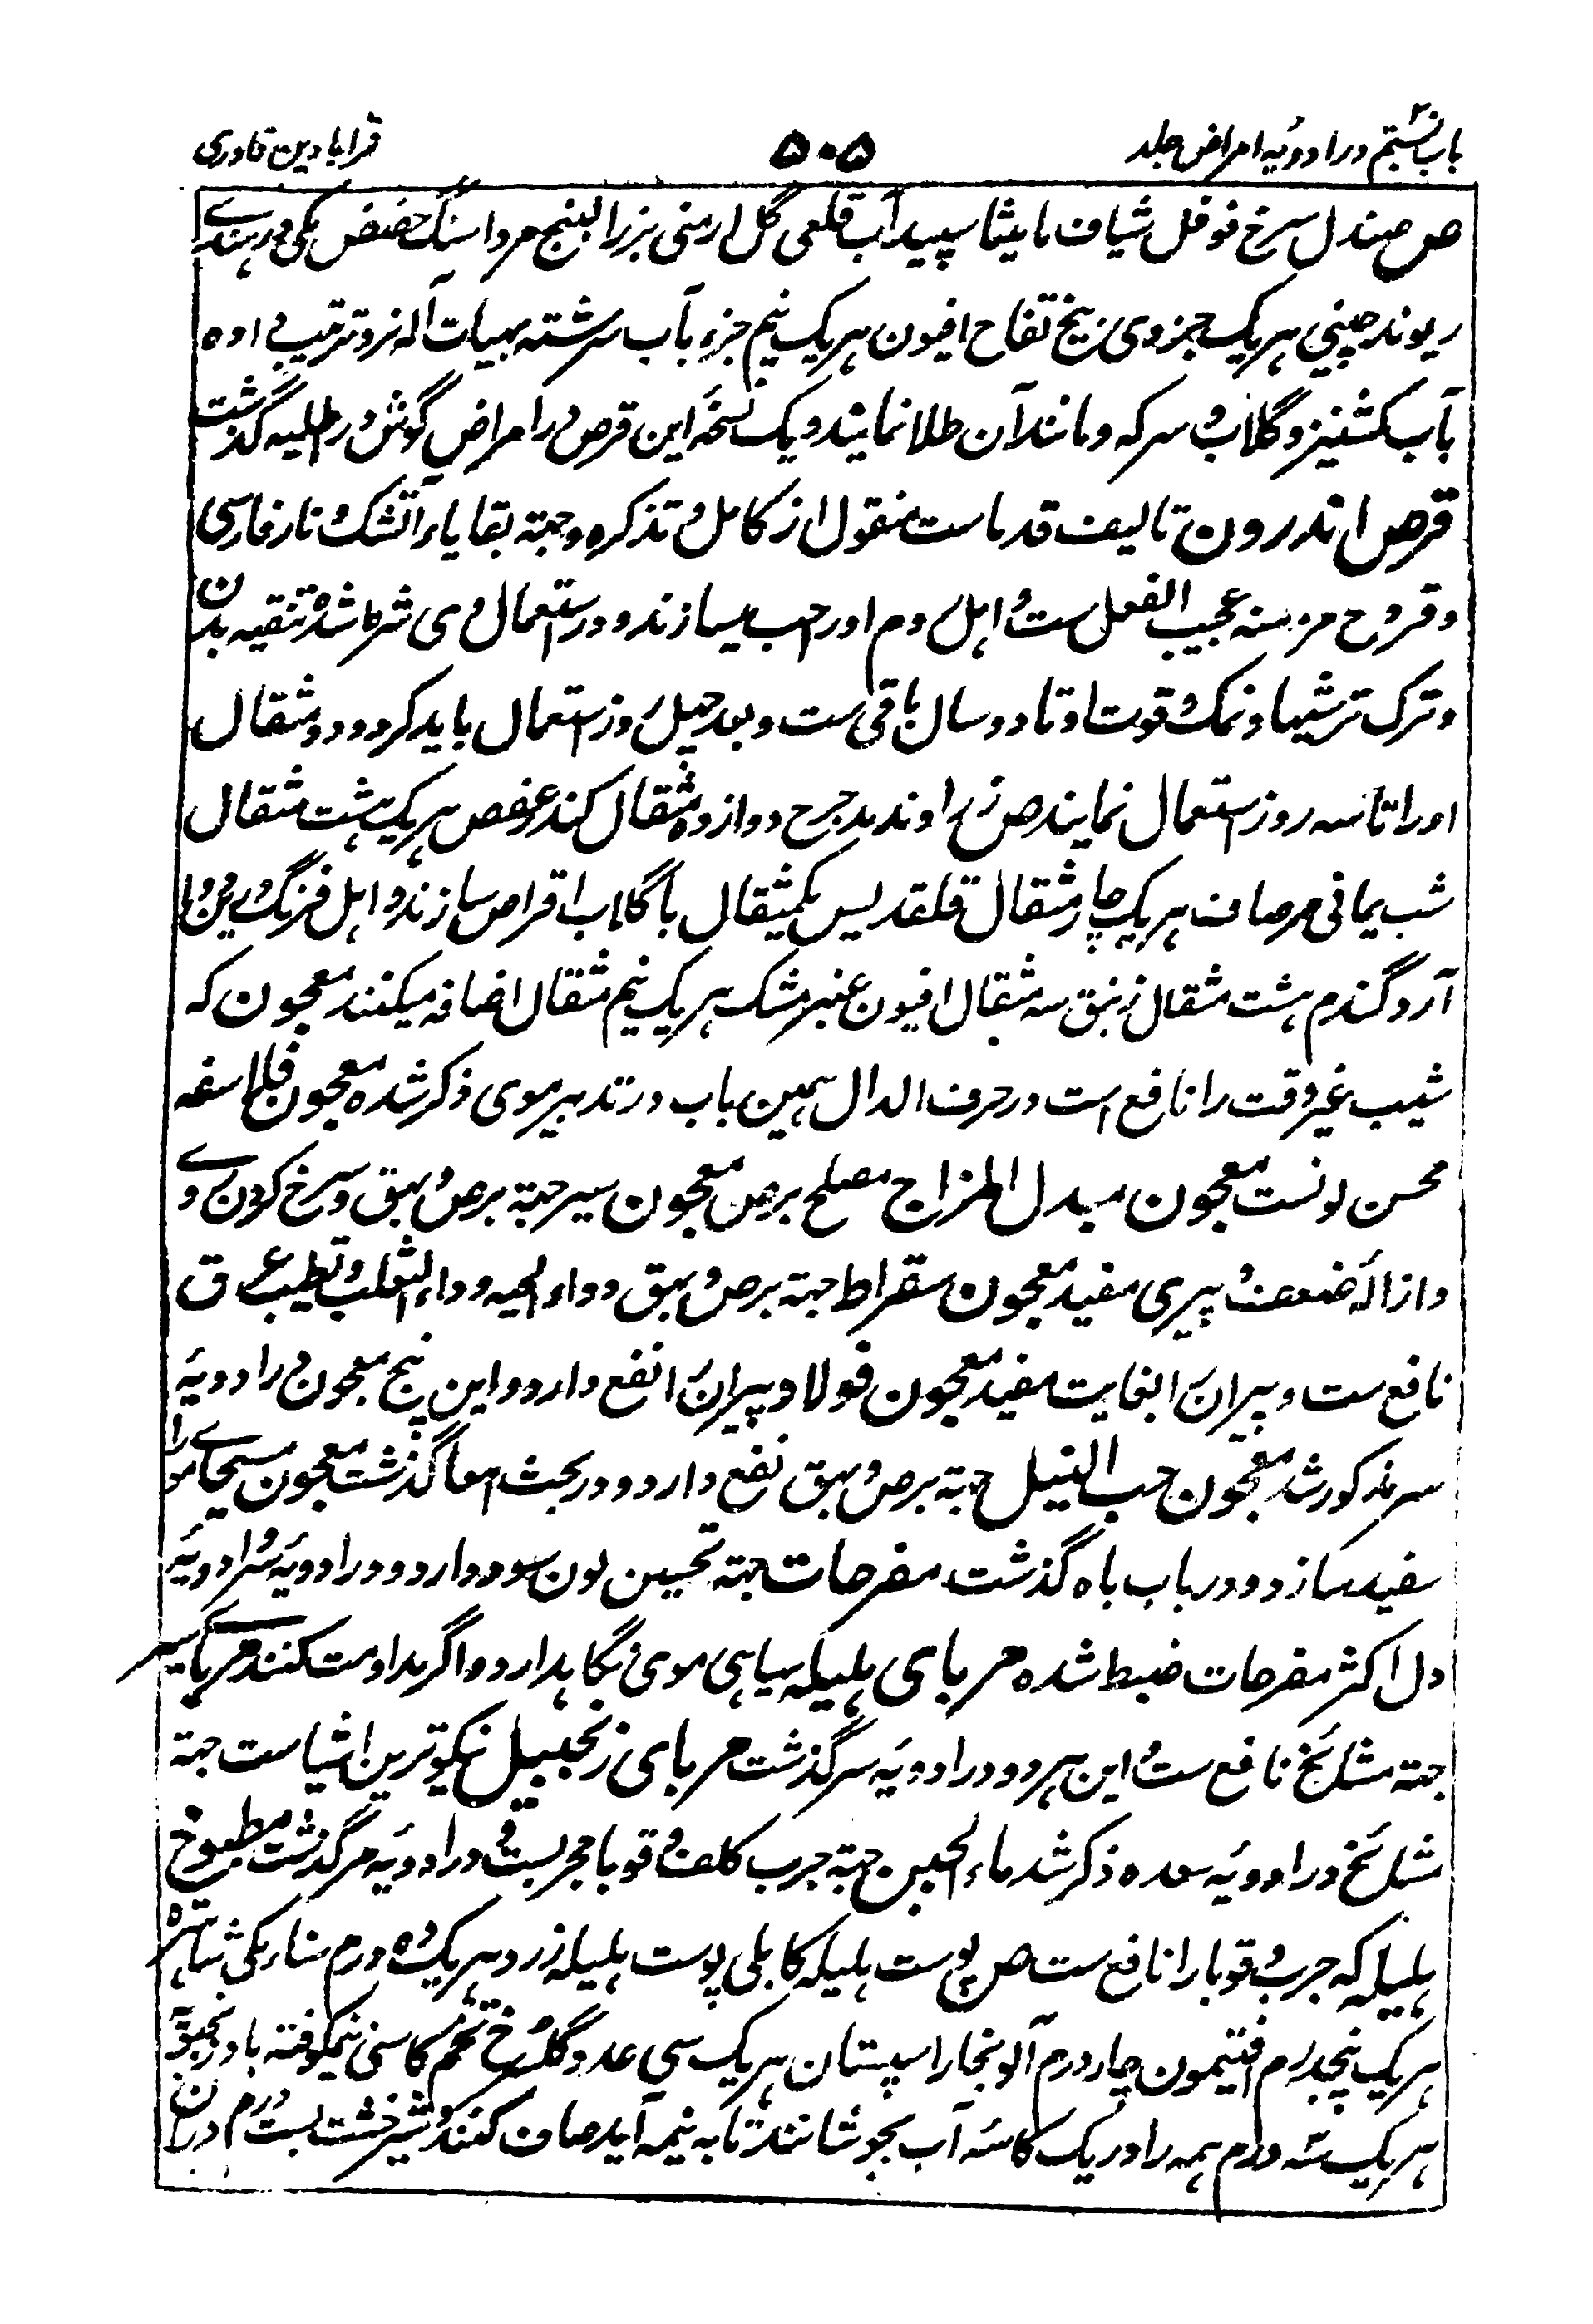 باب بستم در ادویهٔ امراض جلد
۵۰۵
قرابادین قادری
ص صندل سرخ فوفل شیاف مامیثا سپیداب قلعی گل ارمنی بزرالبنج مرداسنگ حضض مکی و هندی
ریوند چینی هر یک جزوی بیخ تفاح افیون هر یک نیم جزء بآب سرشته بهیأت
بآب کشنیز و گلاب و سرکه و مانند آن طلا نمایند و یک نسخهٔ این قرص در امراض گوش در اطلیه گذشت
قرص اندرون تالیف قدماست منقول از کامل و تذکره و جهته بقایاء آتشک و نار فارسی
و قروح مزمنه عجیب الفعل ست و اهل روم او را حب میسازند و در استعمال وی شرط باشد تنقیه بدن
و ترک ترشیها و نمک و قوت او تا دو سال باقی ست و بعد چهل روز استعمال باید کرد و دو مثقال
او را تا سه روز استعمال نمایند ص زراوند مدحرج دوازده مثقال کندر عفص هر یک هشت مثقال
شب یمانی مر صاف هر یک چار مثقال قلقدیس یکمثقال با گلاب اقراص سازند و اهل فرنگ
آرد گندم هشت مثقال زیبق سه مثقال افیون عنبر مشک هر یک نیم مثقال اضافه میکنند معجون که
شیب غیر وقت را نافع است در حرف الدال همین باب در تدبیر موی ذکر شده معجون فلاسفه
محسن لونست معجون مبدل المزاج مصلح برص معجون سیر جهته برص و بهق و سرخ کردن روی
و ازالهٔ ضعف پیری مفید معجون سقراط جهته برص و بهق و داء الحیه و داء الثعلب و تطییب عرق
نافع ست و پیران را بغایت مفید معجون فولاد پیران را نفع دارد و این پنج معجون در ادویهٔ
سر مذکور شد معجون حب النیل جهته برص و بهق نفع دارد و در بحث امعا گذشت معجون مسیحای مو را
سفید سازد و در باب باه گذشت مفرحات جهته تحسین لون سود دارد و در ادویهٔ سر و ادویهٔ
دل اکثر مفرحات ضبط شده مربای هلیله سیاهی موی نگاهدارد و اگر مداومت کنند مربای سیر
جهته مشائخ نافع ست و این هر دو در ادویهٔ سر گذشت مربای زنجبیل نیکوترین اشیاست جهته
مشائخ و در ادویهٔ معده ذکر شد ماء الجبن جهته جرب کلف و قوبا مجربست و در ادویهٔ سر گذشت مطبوخ
هلیله که جرب و قوبا را نافع ست ص پوست هلیله کابلی پوست هلیله زرد هر یک ده درم سناء مکی شاهتره
هر یک پنجدرم افتیمون چار درم آلو بخارا سپستان هر یک سی عدد گلسرخ تخم کاسنی نیمکوفته بادرنجبویه
هر یک سه درم همه را در یک کاسهٔ آب بجوشانند تا به نیمه آید صاف کنند و شیرخشت بست درم در آن